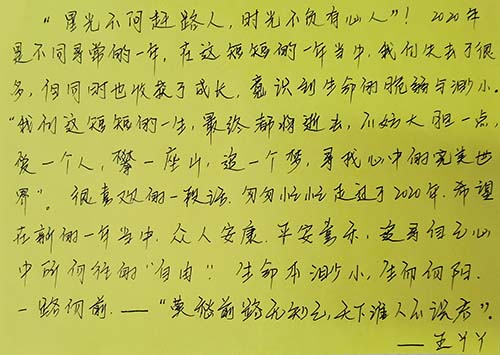 “星光不问赶路人，时光不负有心人”！2020年
是不同寻常的一年，在这短短的一年当中，我们失去了很
多，但同时也收获了成长，意识到生命的脆弱与渺小。
“我们这短短的一生，最终都将逝去，不妨大胆一点，
爱一个人，攀一座山，追一个梦，寻找心中的完美世
界”。很喜欢的一段话，匆匆忙忙走过了2020年，希望
在新的一年当中，众人安康，平安喜乐，追寻自己心
中所向往的“自由”！生命本渺小，生而向阳，
一路向前．——“莫愁前路无知己，天下谁人不识君”。
——王丫丫